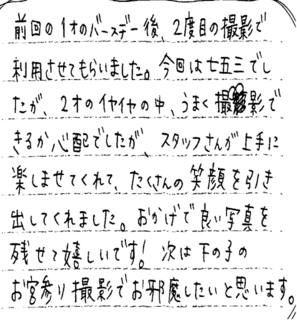 前回の1才のバースデー後、2度目の撮影で
利用させてもらいました。今回は七五三でし
たが、2才のイヤイヤの中、うまく撮影で
きるか心配でしたが、スタッフさんが上手に
楽しませてくれて、たくさんの笑顔を引き
出してくれました。おかげで良い写真を
残せて嬉しいです! 次は下の子の
お宮参り撮影でお邪魔したいと思います。